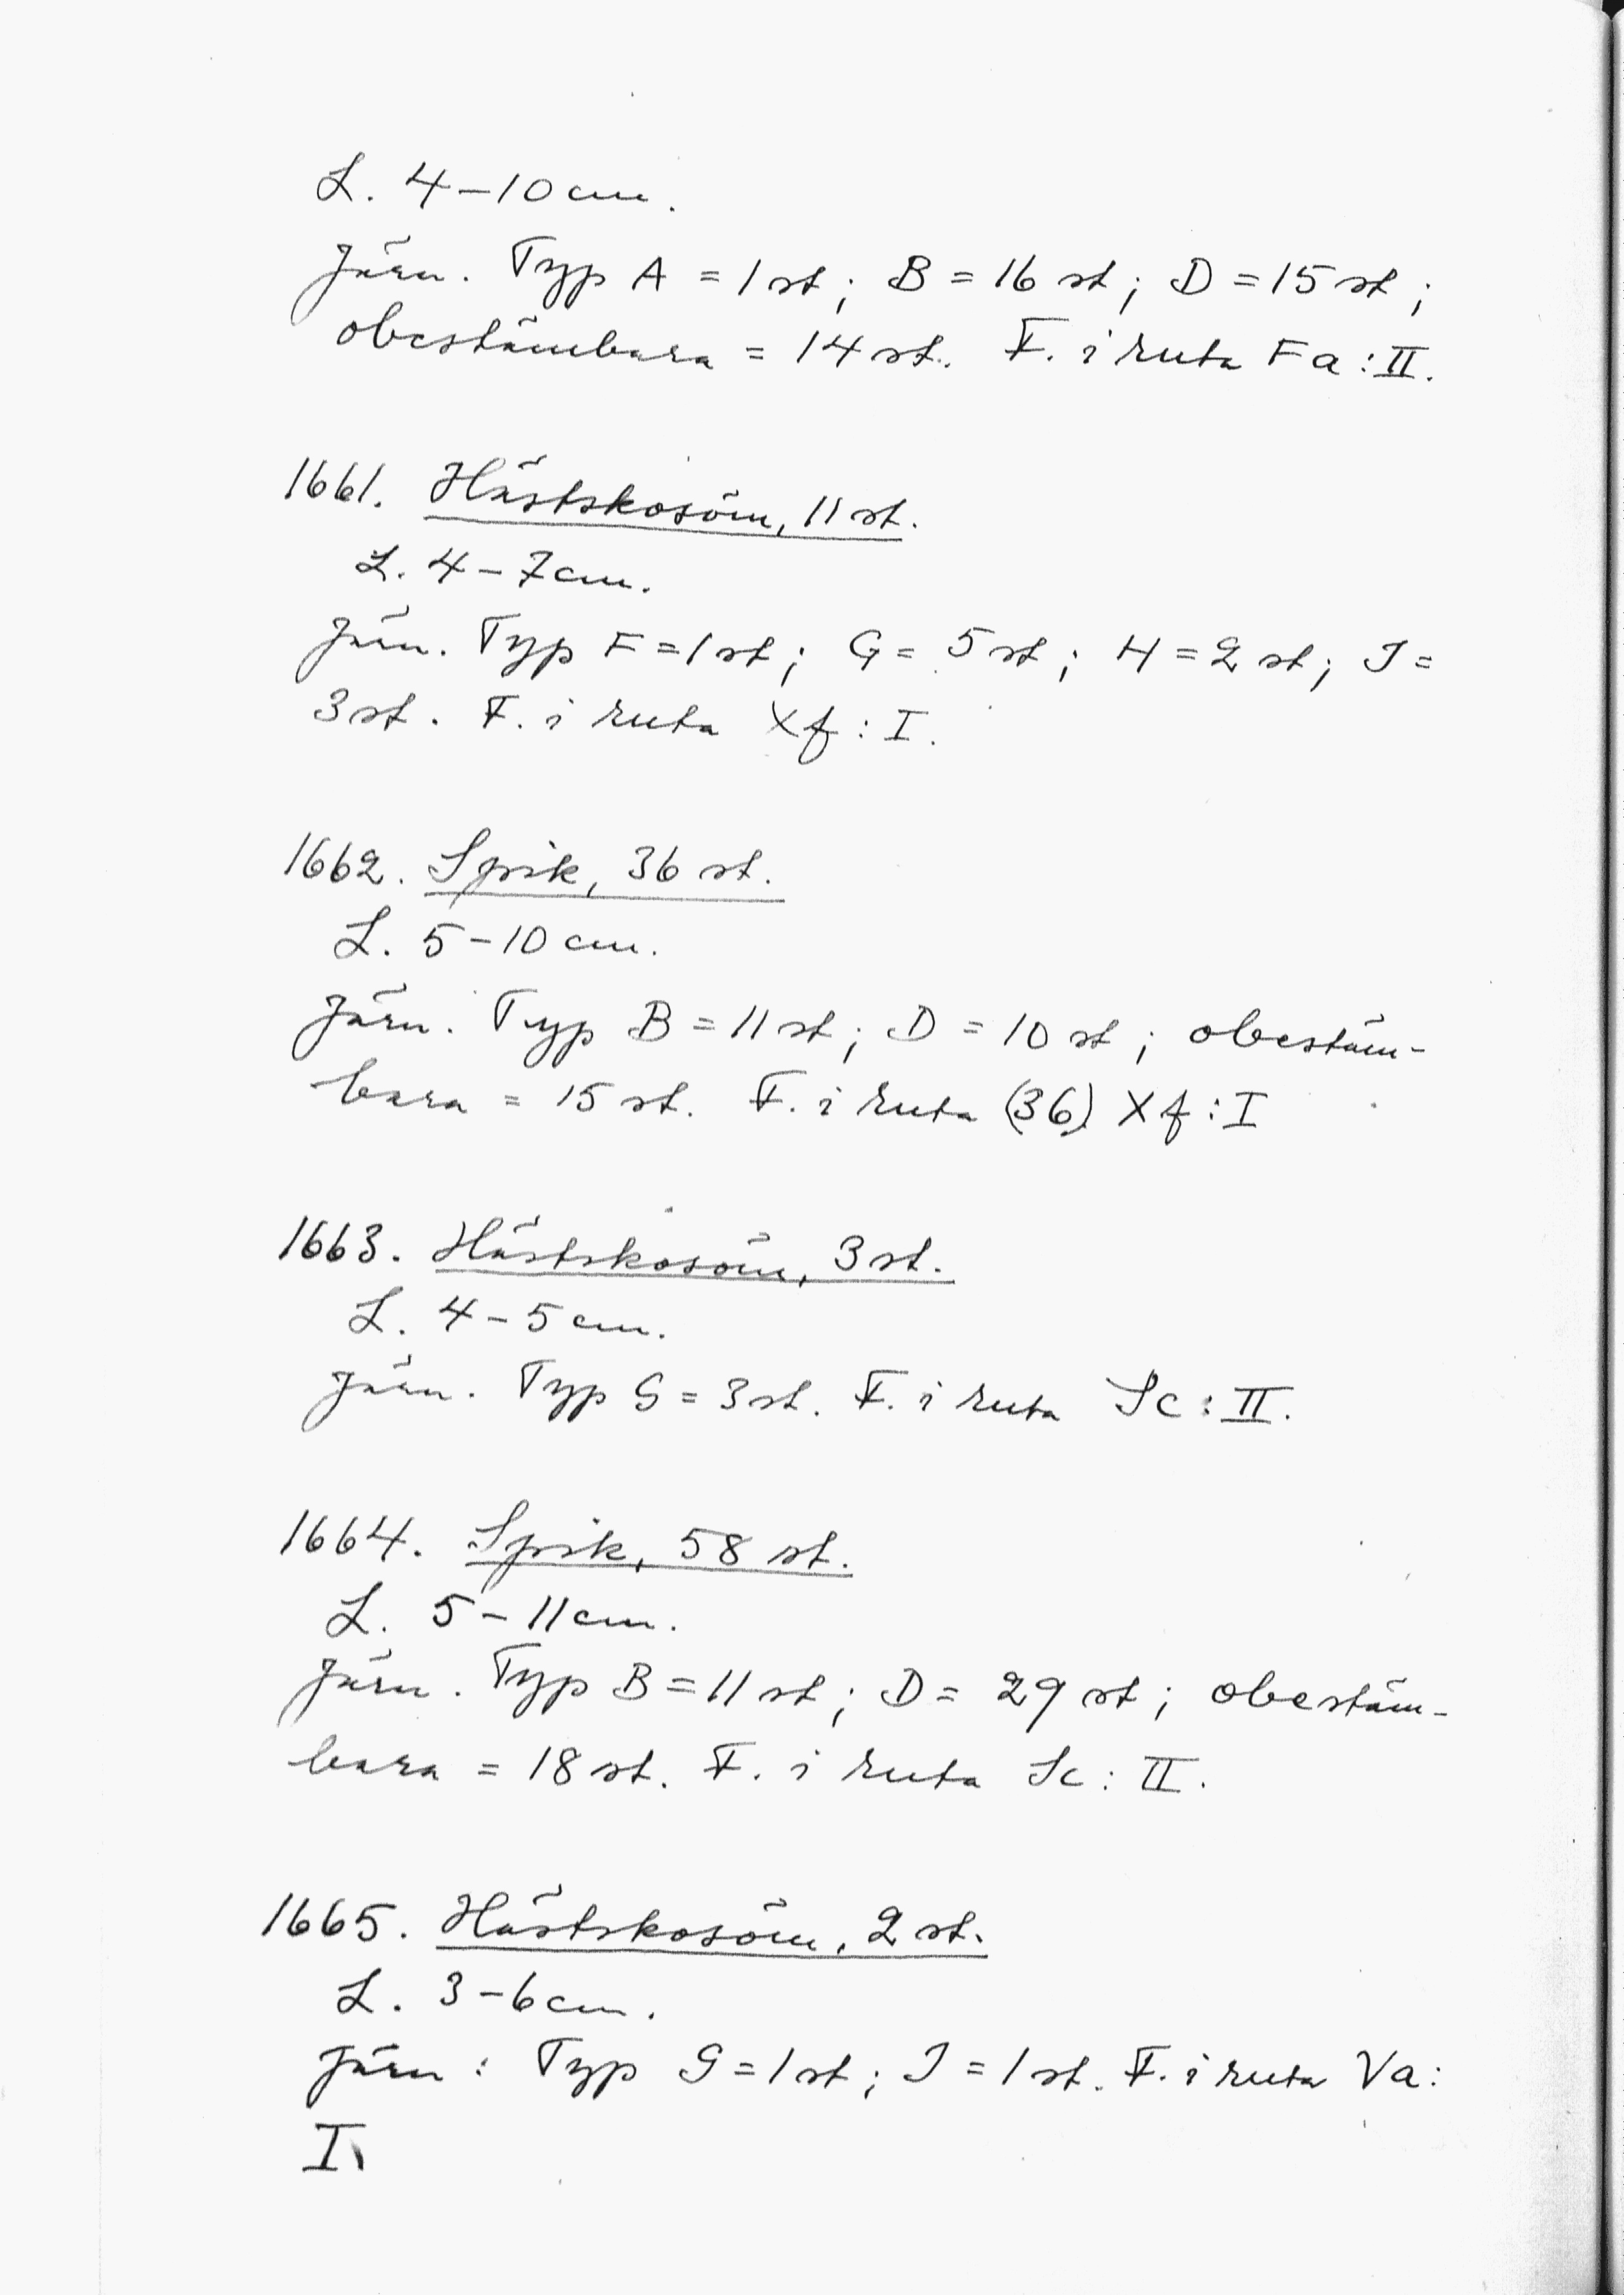 L. 4-10 cm.
Järn. Typ A = 1 st; B = 16 st; D = 15 st;
obestämbara = 14 st. F. i ruta Fa : II.
1661. Hästskosöm, 11 st.
L. 4-7 cm.
Järn. Typ F = 1 st; G = 5 st; H = 2 st; J =
3 st. F. i ruta Xf : I.
1662. Spik, 36 st.
L. 5-10 cm.
Järn. Typ B = 11 st; D = 10 st; obestäm-
bara = 15 st. F. i ruta (36) Xf : I
1663. Hästskosöm, 3 st.
L. 4-5 cm.
Järn. Typ G = 3 st. F. i ruta Sc : II.
1664. Spik, 58 st.
L. 5-11 cm.
Järn. Typ B = 11 st; D = 29 st; obestäm-
bara = 18 st. F. i ruta Sc : II.
1665. Hästskosöm, 2 st.
L. 3-6 cm.
Järn : Typ G = 1 st; J = 1 st. F. i ruta Va :
I.